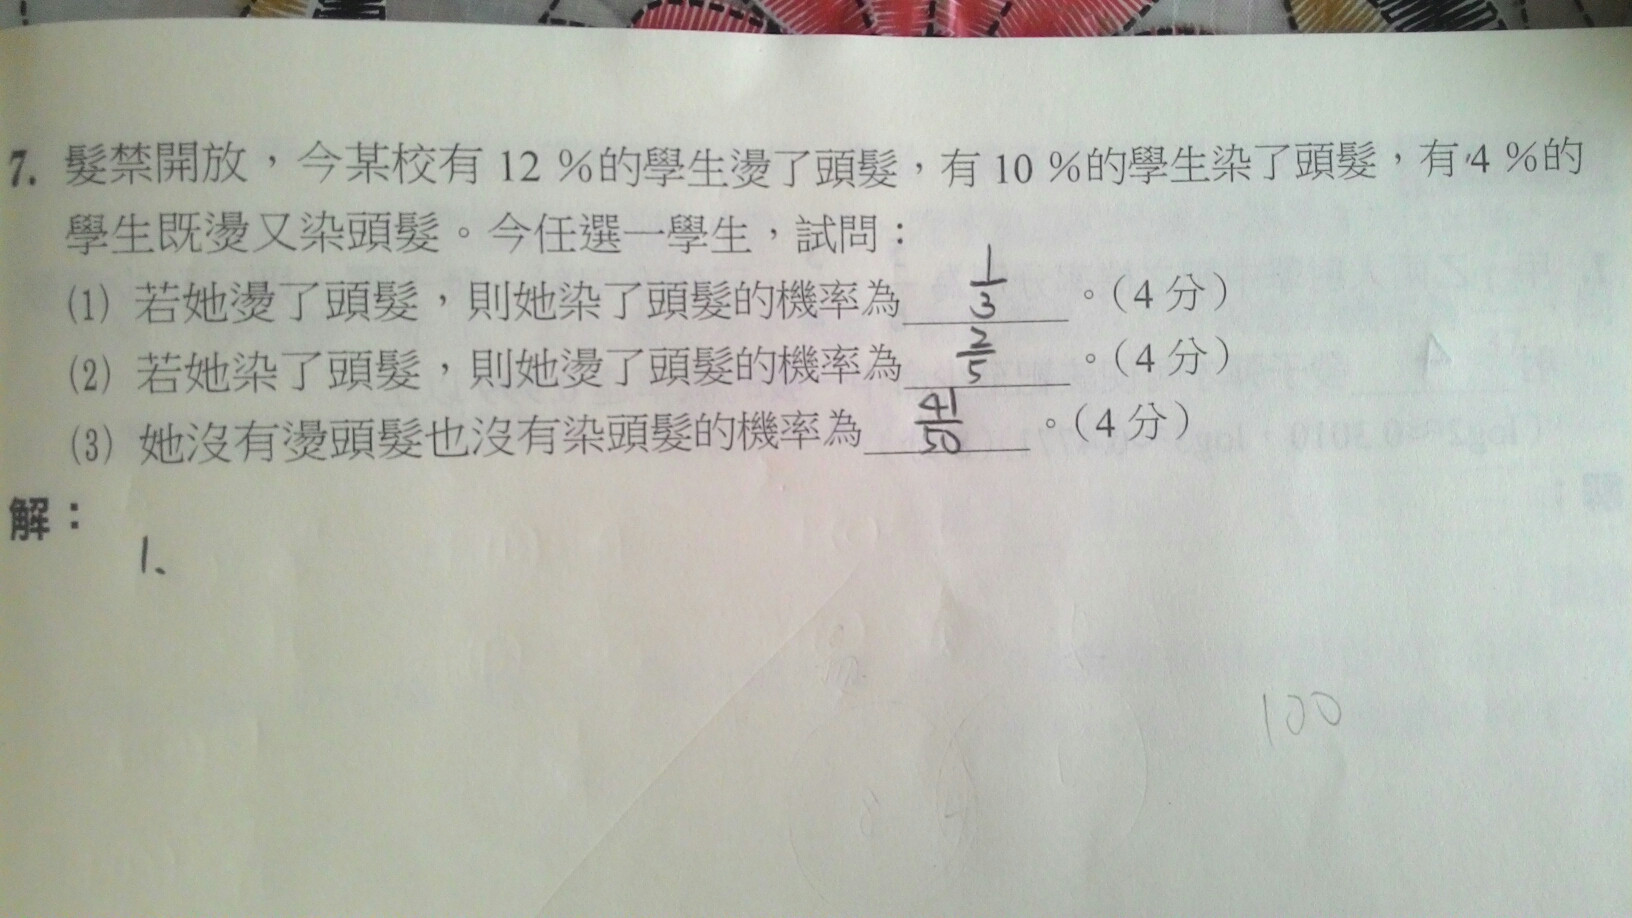 7. 髮禁開放，今某校有 12 %的學生燙了頭髮，有 10 %的學生染了頭髮，有 4 %的
學生既燙又染頭髮。今任選一學生，試問：
(1) 若她燙了頭髮，則她染了頭髮的機率為 1/3 。(4 分)
(2) 若她染了頭髮，則她燙了頭髮的機率為 2/5 。(4 分)
(3) 她沒有燙頭髮也沒有染頭髮的機率為 41/50 。(4 分)
解：
1、
100
8 4